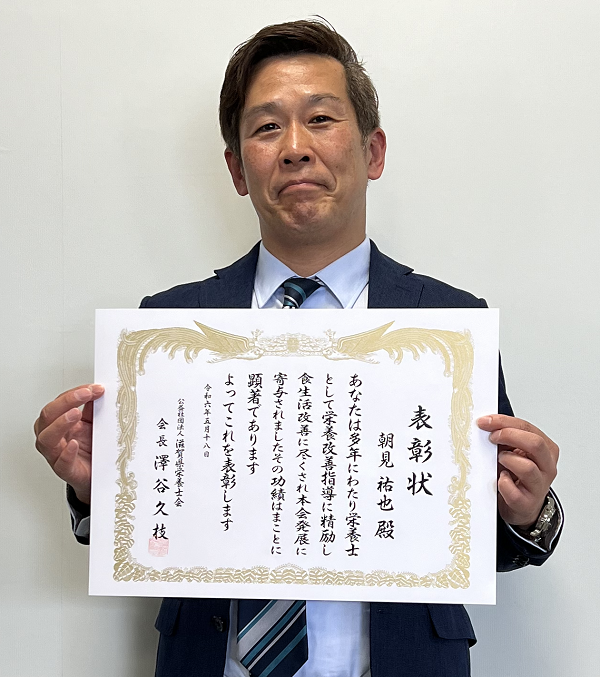 表彰状
朝見 祐也 殿
あなたは多年にわたり栄養士
として栄養改善指導に精励し
食生活改善に尽くされ本会発展に
寄与されましたその功績はまことに
顕著であります
よってこれを表彰します
令和六年五月十八日
公益社団法人 滋賀県栄養士会
会長 澤谷久枝